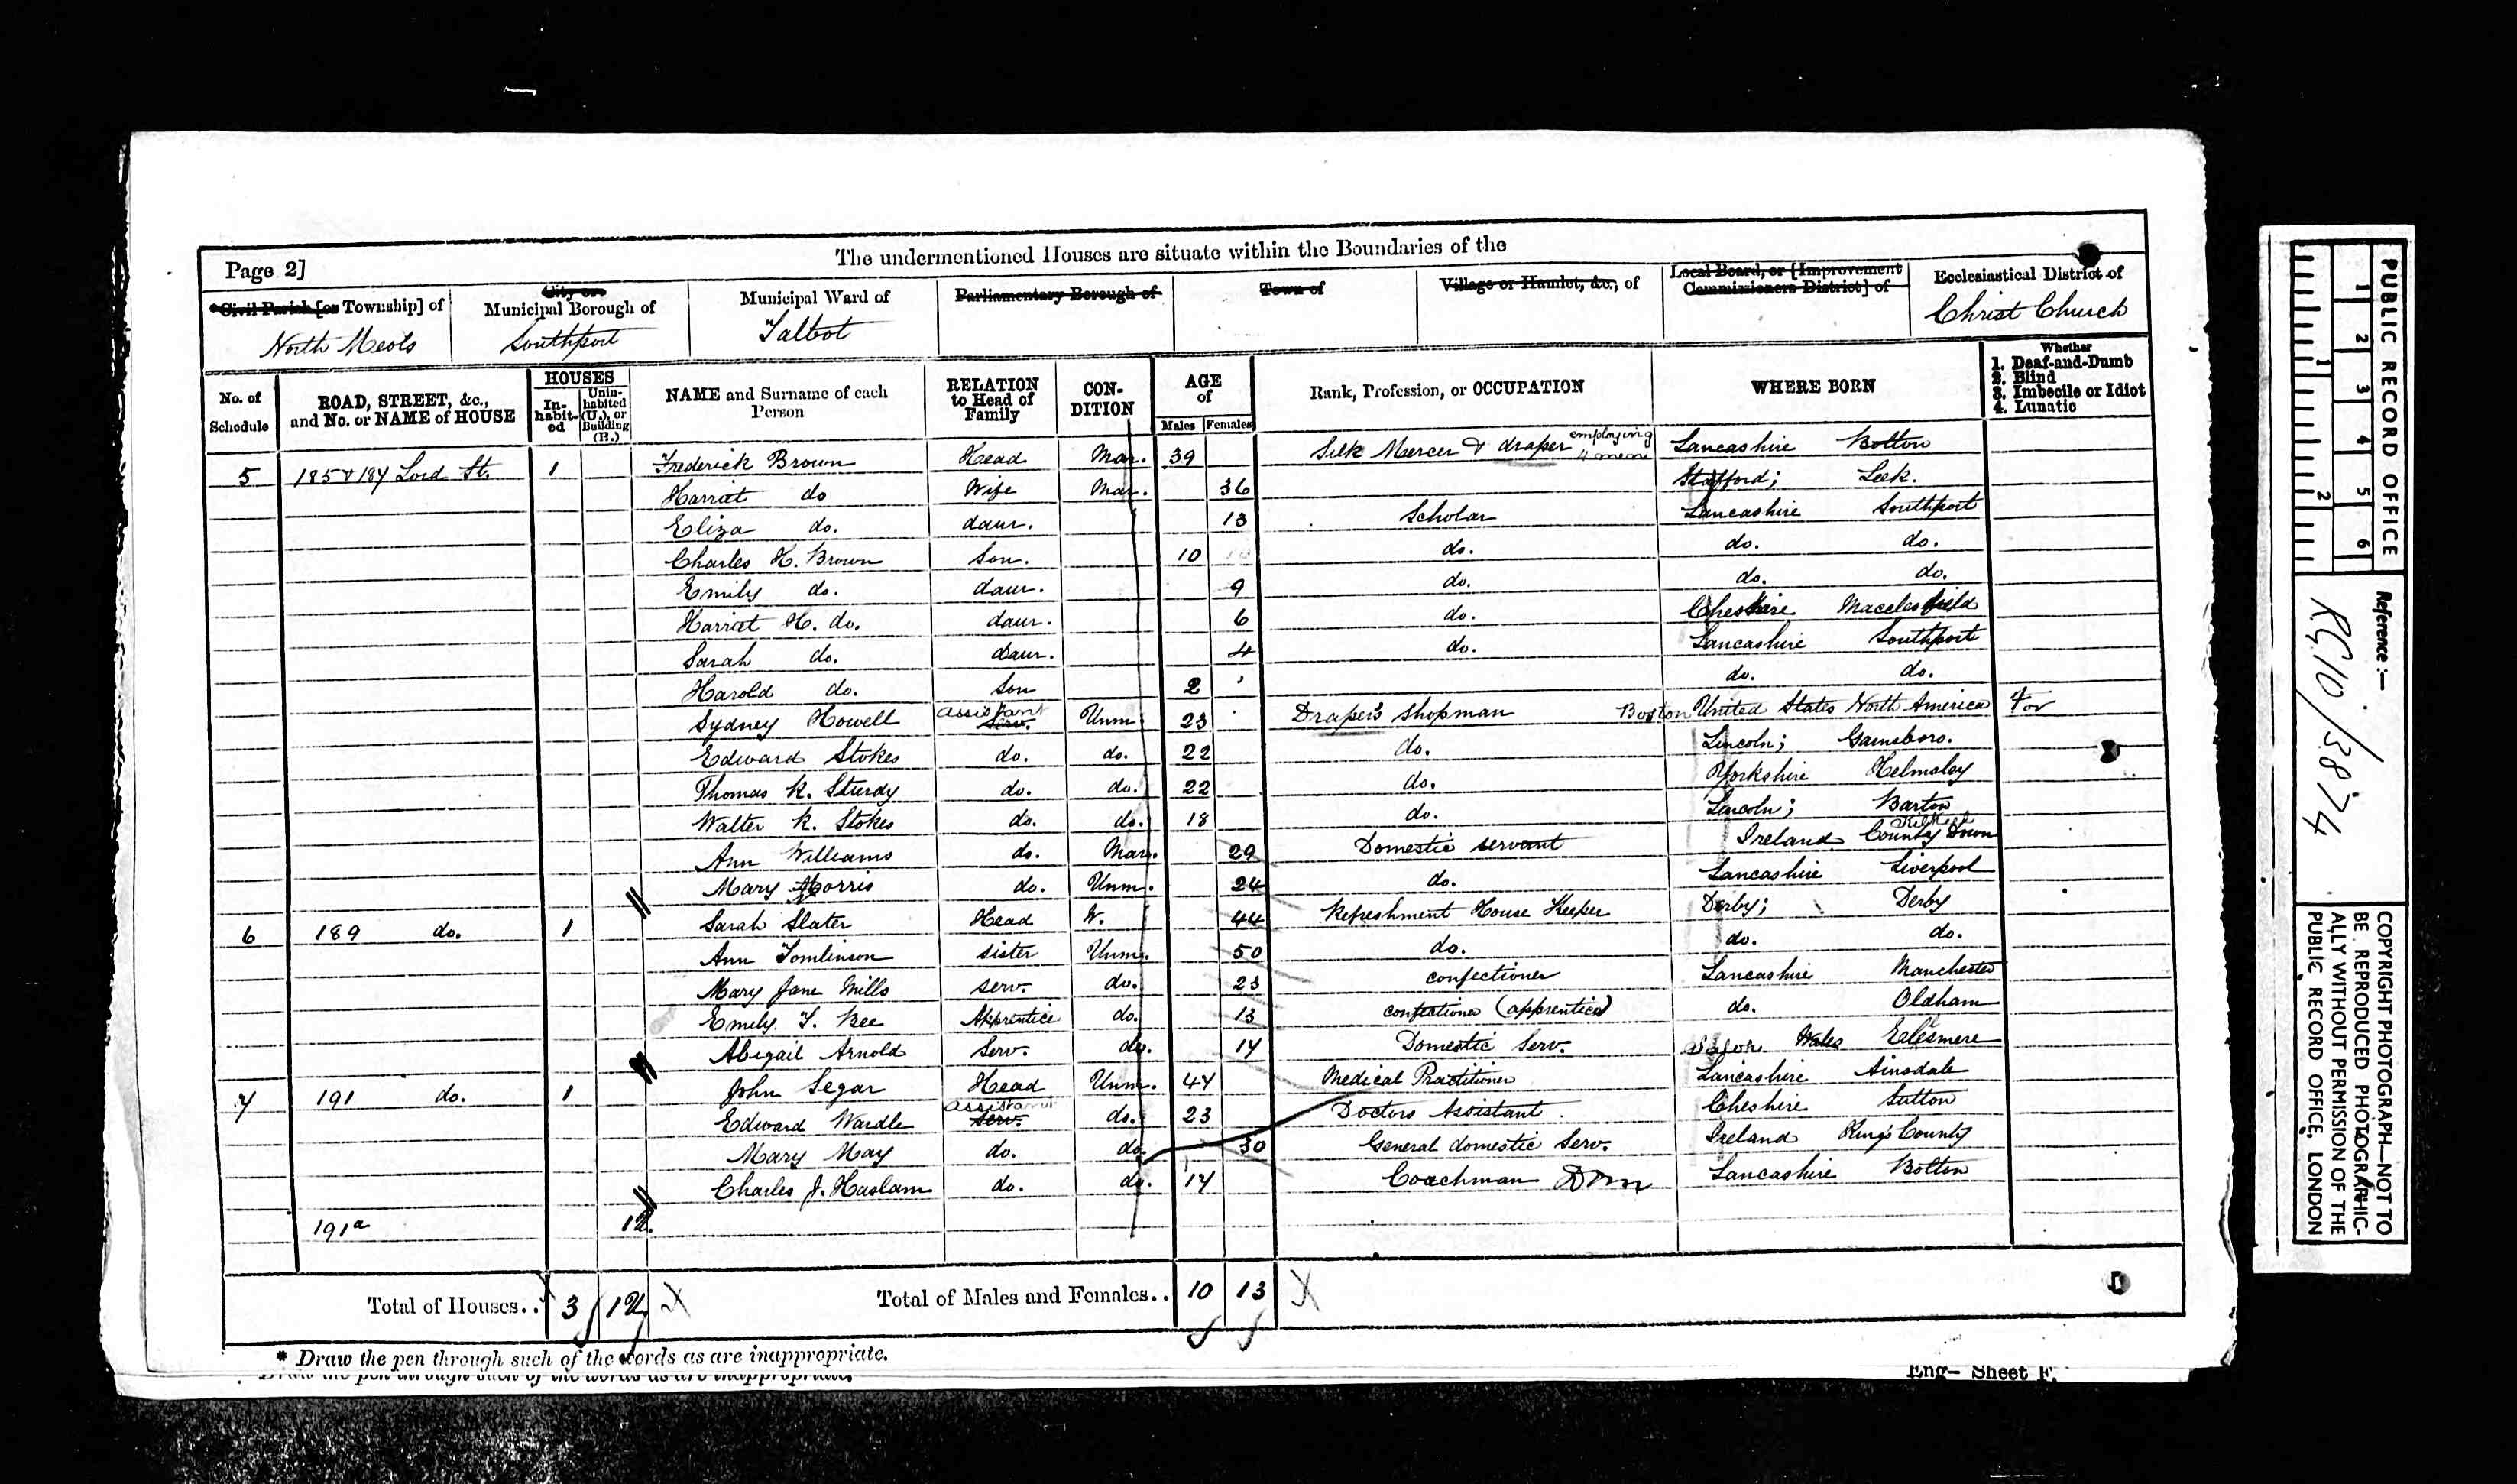 Page 2]
The undermentioned Houses are situate within the Boundaries of the
*Civil Parish [or Township] of
North Meols
City or
Municipal Borough of
Southport
Municipal Ward of
Talbot
Parliamentary Borough of
Town of
Village or Hamlet, &c., of
Local Board, or [Improvement
Commissioners District] of
Ecclesiastical District of
Christ Church
No. of
Schedule
ROAD, STREET, &c.,
and No. or NAME of HOUSE
HOUSES
In-
habit-
ed
Unin-
habited
(U.), or
Building
(B.)
NAME and Surname of each
Person
RELATION
to Head of
Family
CON-
DITION
AGE
of
Males Females
Rank, Profession, or OCCUPATION
WHERE BORN
Whether
1. Deaf-and-Dumb
2. Blind
3. Imbecile or Idiot
4. Lunatic
5 185 & 187 Lord St. 1 Frederick Brown Head Mar. 39 Silk Mercer & draper employing 4 men Lancashire Bolton
Harriet do Wife Mar. 36 Stafford; Leek.
Eliza do. daur. 13 Scholar Lancashire Southport
Charles H. Brown Son. 10 do. do. do.
Emily do. daur. 9 do. do. do.
Harriet H. do. daur. 6 do. Cheshire Macclesfield
Sarah do. daur. 4 do. Lancashire Southport
Harold do. son 2 do. do.
Sydney Howell Assistant Serv. Unm 23 Draper's Shopman Boston United States North America
Edward Stokes do. do. 22 do. Lincoln; Gainsboro.
Thomas K. Sturdy do. do. 22 do. Yorkshire Helmsley
Walter K. Stokes do. do. 18 do. Lincoln; Barton
Ann Williams do. Mar. 29 Domestic servant Ireland County Down
Mary Morris do. Unm. 24 do. Lancashire Liverpool
6 189 do. 1 Sarah Slater Head W. 44 Refreshment House Keeper Derby; Derby
Ann Tomlinson sister Unm. 50 do. do. do.
Mary Jane Mills serv. do. 23 confectioner Lancashire Manchester
Emily T. Bee Apprentice do. 13 confectioner (apprentice) do. Oldham
Abigail Arnold Serv. do. 17 Domestic Serv. Salop Wales Ellesmere
7 191 do. 1 John Segar Head Unm. 47 Medical Practitioner Lancashire Ainsdale
Edward Wardle Assistant Serv. do. 23 Doctors Assistant. Cheshire Sutton
Mary May do. do. 30 General domestic Serv. Ireland Kings County
Charles J. Haslam do. do. 17 Coachman Dom Lancashire Bolton
191a 1U.
Total of Houses.. 3 1U Total of Males and Females.. 10 13
* Draw the pen through such of the words as are inappropriate.
Eng— Sheet F.
PUBLIC RECORD OFFICE
1 2 3 4 5 6
1 2
Reference:—
RG10/3874
COPYRIGHT PHOTOGRAPH—NOT TO
BE REPRODUCED PHOTOGRAPHIC-
ALLY WITHOUT PERMISSION OF THE
PUBLIC RECORD OFFICE, LONDON